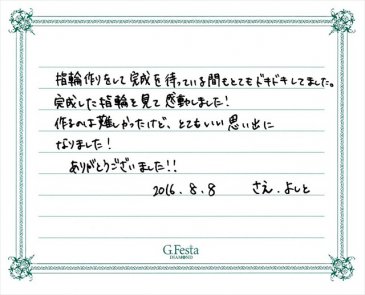 指輪作りをして完成を待っている間もとてもドキドキしてました。
完成した指輪を見て感動しました!
作るのは難しかったけど、とてもいい思い出に
なりました!
ありがとうございました!!
2016.8.8 さえ.よしと
G.Festa
DIAMOND